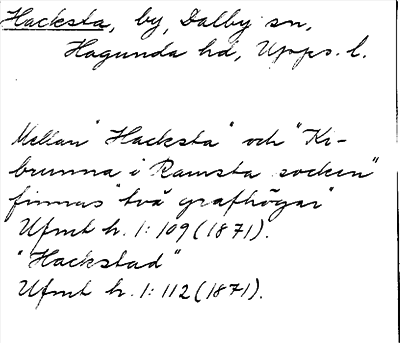 Hacksta, by, Dalby sn,
Hagunda hd, Upps. l.
Mellan "Hacksta" och "Kr-
brunna i Ramsta socken"
finnas "två grafhögar"
Ufmt h. 1: 109 (1871).
"Hackstad"
Ufmt h. 1: 112 (1871).